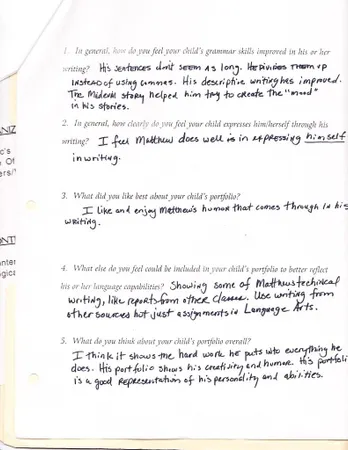 1. In general, how do you feel your child's grammar skills improved in his or her
writing? His sentences don't seem as long. He divides them up
instead of using commas. His descriptive writing has improved.
The Mideval story helped him try to create the "mood"
in his stories.
2. In general, how clearly do you feel your child expresses him/herself through his
writing? I feel Matthew does well is in expressing himself
in writing.
3. What did you like best about your child's portfolio?
I like and enjoy Matthew's humor that comes through in his
writing.
4. What else do you feel could be included in your child's portfolio to better reflect
his or her language capabilities? Showing some of Matthews techincal
writing, like reports from other classes. Use writing from
other sources not just assignments in Language Arts.
5. What do you think about your child's portfolio overall?
I think it shows the hard work he puts into everything he
does. His portfolio shows his creativity and humor. His portfoli
is a good representation of his personality and abilities.
ANIZ
c's
Of
ers/
ONTI
nter
gica